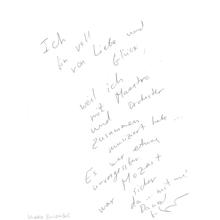 Ich
bin voll
von Liebe und
Glück,
weil ich
mit Maestro
und Orchester
zusammen
musiziert habe...
Es war schon
unvergeßlich
Mozart
war sicher
da mit mir